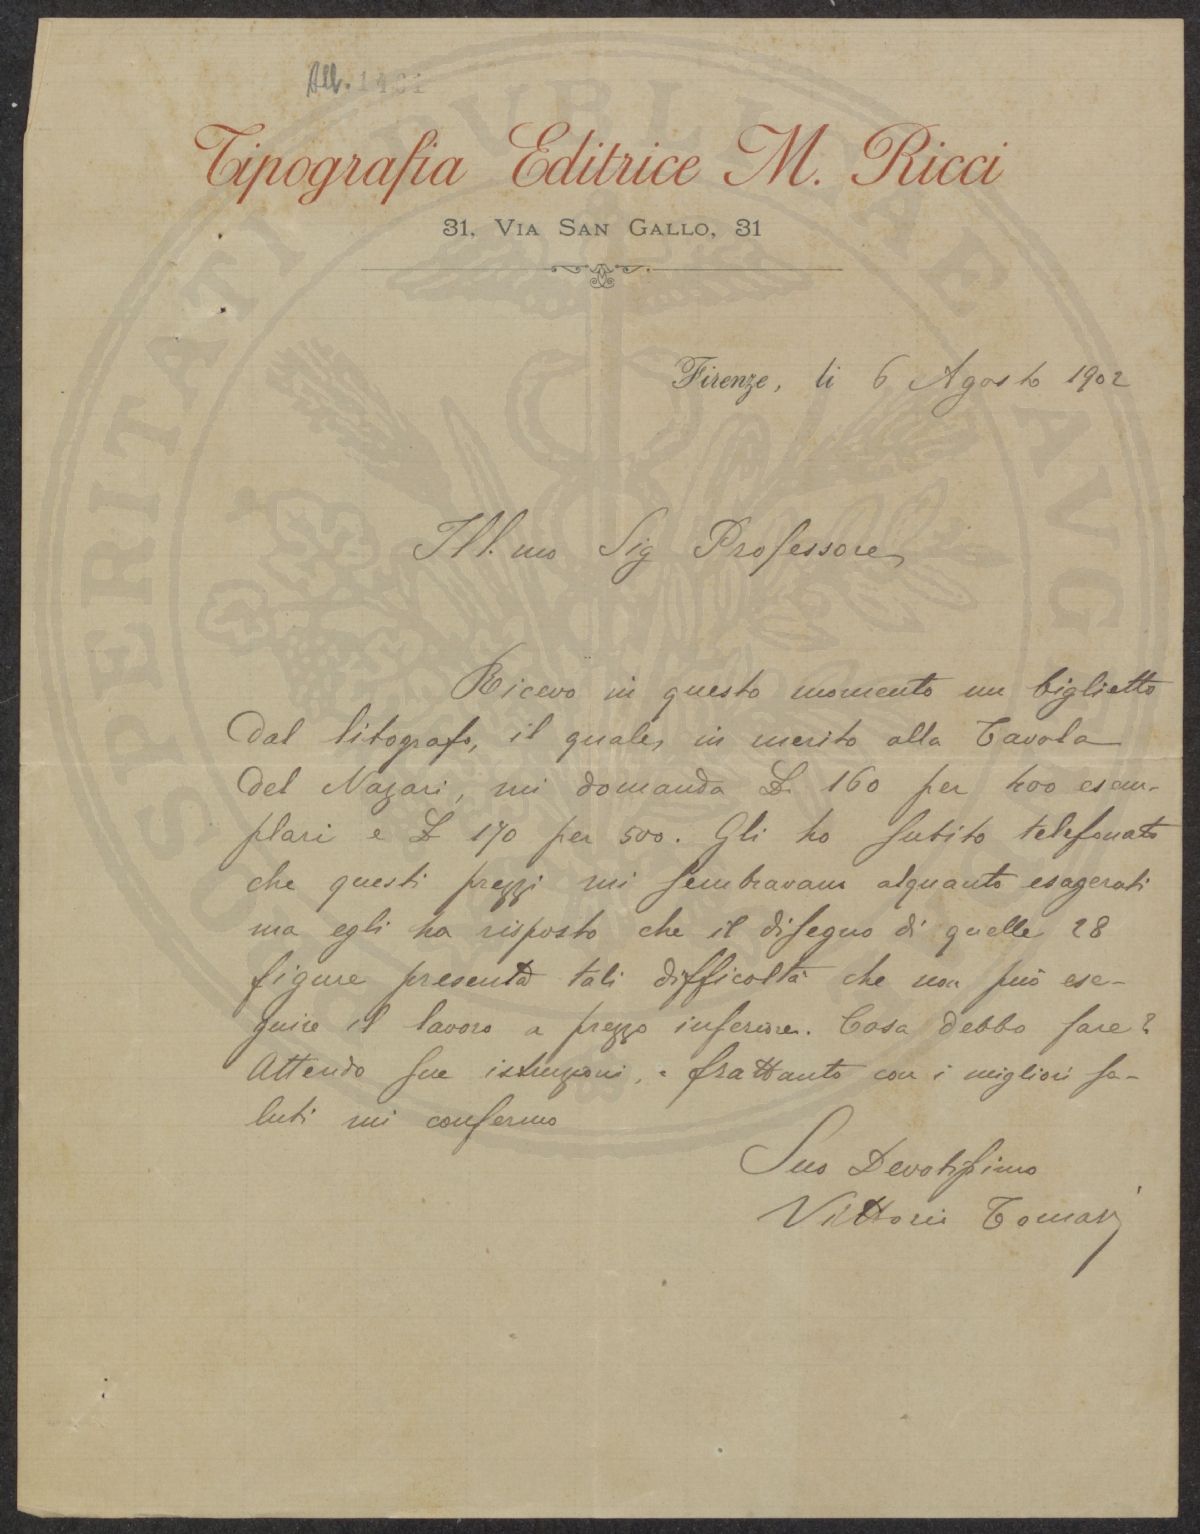 All. 1401
Tipografia Editrice M. Ricci
31, VIA SAN GALLO, 31
Firenze, li 6 Agosto 1902
Ill.mo Sig Professore,
Ricevo in questo momento un biglietto
dal litografo, il quale, in merito alla Tavola
del Nazari, mi domanda £ 160 per 400 esem-
plari e £ 170 per 500. Gli ho subito telefonato
che questi prezzi mi sembravano alquanto esagerati
ma egli ha risposto che il disegno di quelle 28
figure presenta tali difficoltà che non può ese-
guire il lavoro a prezzo inferiore. Cosa debbo fare?
Attendo sue istruzioni, e frattanto con i migliori sa-
luti mi confermo
Suo Devotissimo
Vittorio